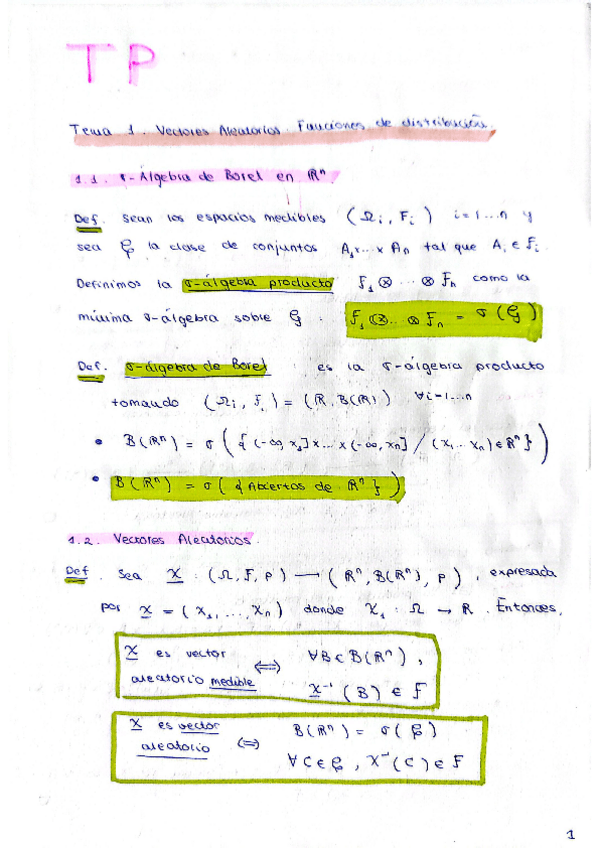 TP
Tema 1. Vectores Aleatorios. Funciones de distribución.
1.1. σ-Álgebra de Borel en ℝⁿ.
Def. Sean los espacios medibles (Ωᵢ, Fᵢ) i=1...n y
sea 𝒢 la clase de conjuntos A₁x...x Aₙ tal que Aᵢ ∈ Fᵢ.
Definimos la σ-álgebra producto F₁ ⊗ ... ⊗ Fₙ como la
mínima σ-álgebra sobre 𝒢 : F₁ ⊗... ⊗ Fₙ = σ(𝒢)
Def. σ-álgebra de Borel : es la σ-álgebra producto
tomando (Ωᵢ, Fᵢ) = (ℝ, B(ℝ)) ∀i=1...n
• B(ℝⁿ) = σ({(-∞, x₁]x...x(-∞, xₙ] / (x₁...xₙ)∈ℝⁿ})
• B(ℝⁿ) = σ({Abiertos de ℝⁿ})
1.2. Vectores Aleatorios.
Def. Sea X : (Ω, F, P) → (ℝⁿ, B(ℝⁿ), P), expresada
por X = (X₁, ..., Xₙ) donde X₁ : Ω → ℝ. Entonces,
X es vector aleatorio medible ⟺ ∀B∈B(ℝⁿ),
X⁻¹(B) ∈ F
X es vector aleatorio ⟺ B(ℝⁿ) = σ(𝒢)
∀C∈𝒢, X⁻¹(C) ∈ F
1